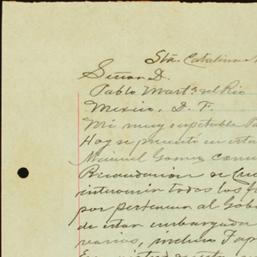 Sta. Catalina
Señor D.
Pablo Martz. del Rio
Mexico, D. F.
Mi muy respetable
Hoy se presentó en esta
Manuel Gomez como
Recaudacion de
intervenir todos los
por pertenecer al Gob
de estar embargada
varios, incluso